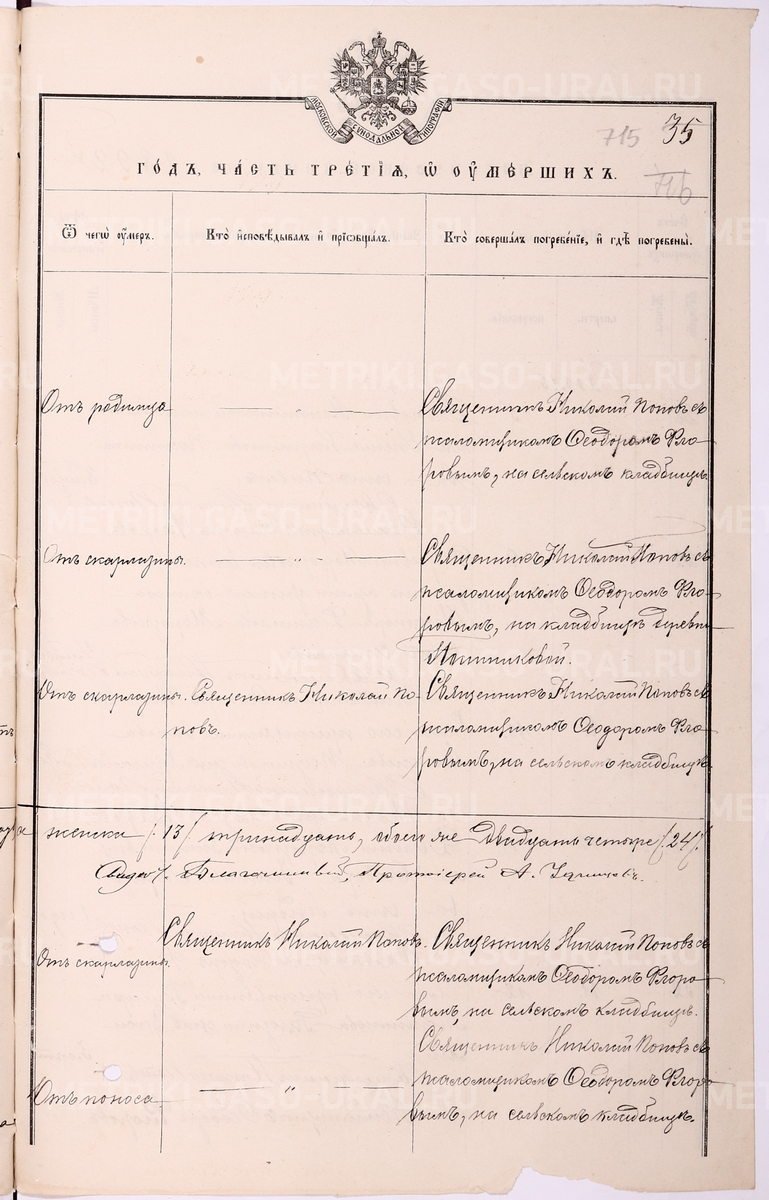 МОСКОВСКОЙ СѴНОДАЛЬНОЙ ТИПОГРАФІИ
715 35
716
ГОДЪ, ЧАСТЬ ТРЕТІЯ, Ѡ ОУМЕРШИХЪ.
Ѿ чегѡ оумеръ.
Кто исповѣдывалъ и пріобщалъ.
Кто совершалъ погребеніе, и гдѣ погребены.
Отъ родимца — „ — Священникъ Николай Поповъ съ
псаломщикомъ Ѳеодоромъ
на сельскомъ кладбищѣ.
Отъ скарлатины. — „ — Священникъ Николай Поповъ съ
псаломщикомъ Ѳеодоромъ
на кладбищѣ деревни
Отъ скарлатины. Священникъ Николай По-
повъ.
Священникъ Николай Поповъ съ
псаломщикомъ Ѳеодоромъ
на сельскомъ кладбищѣ.
женска /: 13 /: тринадцать, обоего же двадцать четыре /: 24 /:
Благочинный, Протоіерей А.
Отъ скарлатины. Священникъ Николай Поповъ. Священникъ Николай Поповъ съ
псаломщикомъ Ѳеодоромъ
на сельскомъ кладбищѣ.
Отъ поноса — „ — Священникъ Николай Поповъ съ
псаломщикомъ Ѳеодоромъ
на сельскомъ кладбищѣ.
METRIKI.GASO-URAL.RU